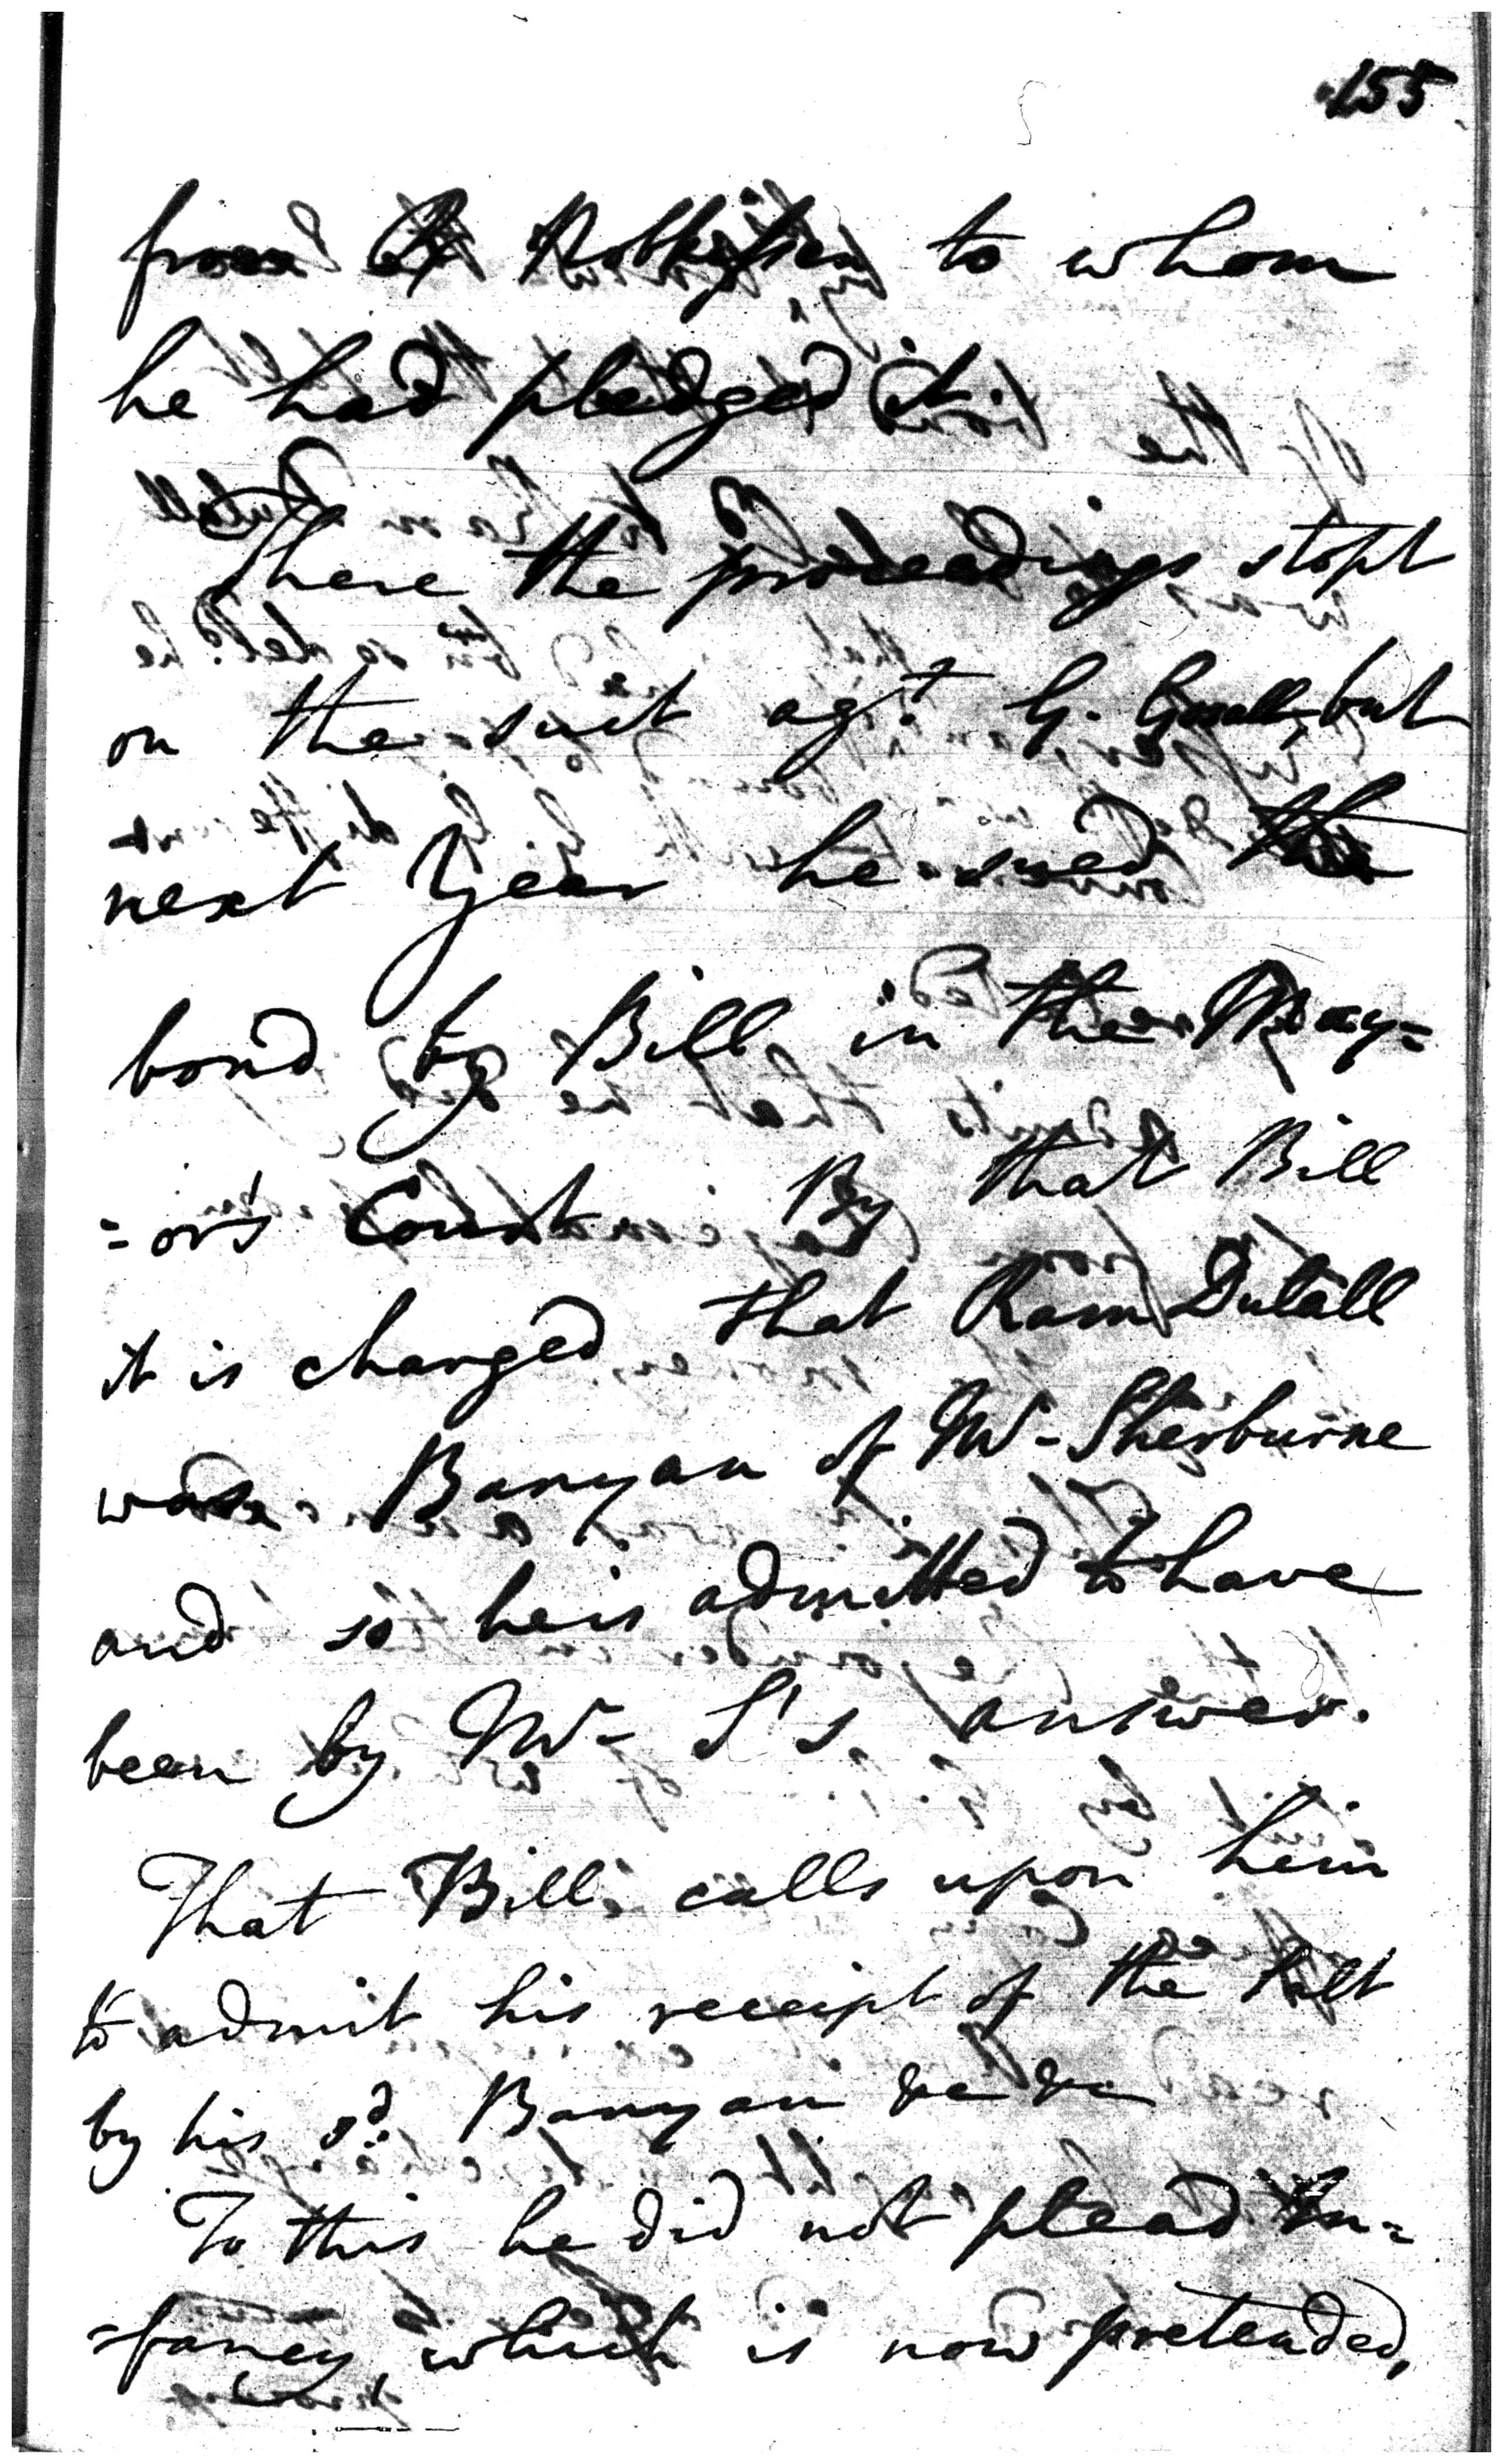 155
from R Nobkissen to whom
he had pledged it.
There the proceedings stopt
on the suit agt. G. Gosall, but
next Year he sued the
bond by Bill in the May=
=or's Court. By that Bill
it is charged that Ram Dutall
was Banyan of Mr Sherburne
and so he is admitted to have
been by Mr S's answer.
That Bill calls upon him
to admit his receipt of the Salt
by his sd. Banyan &c &c
To this he did not plead In=
=fancy, which is now pretended,